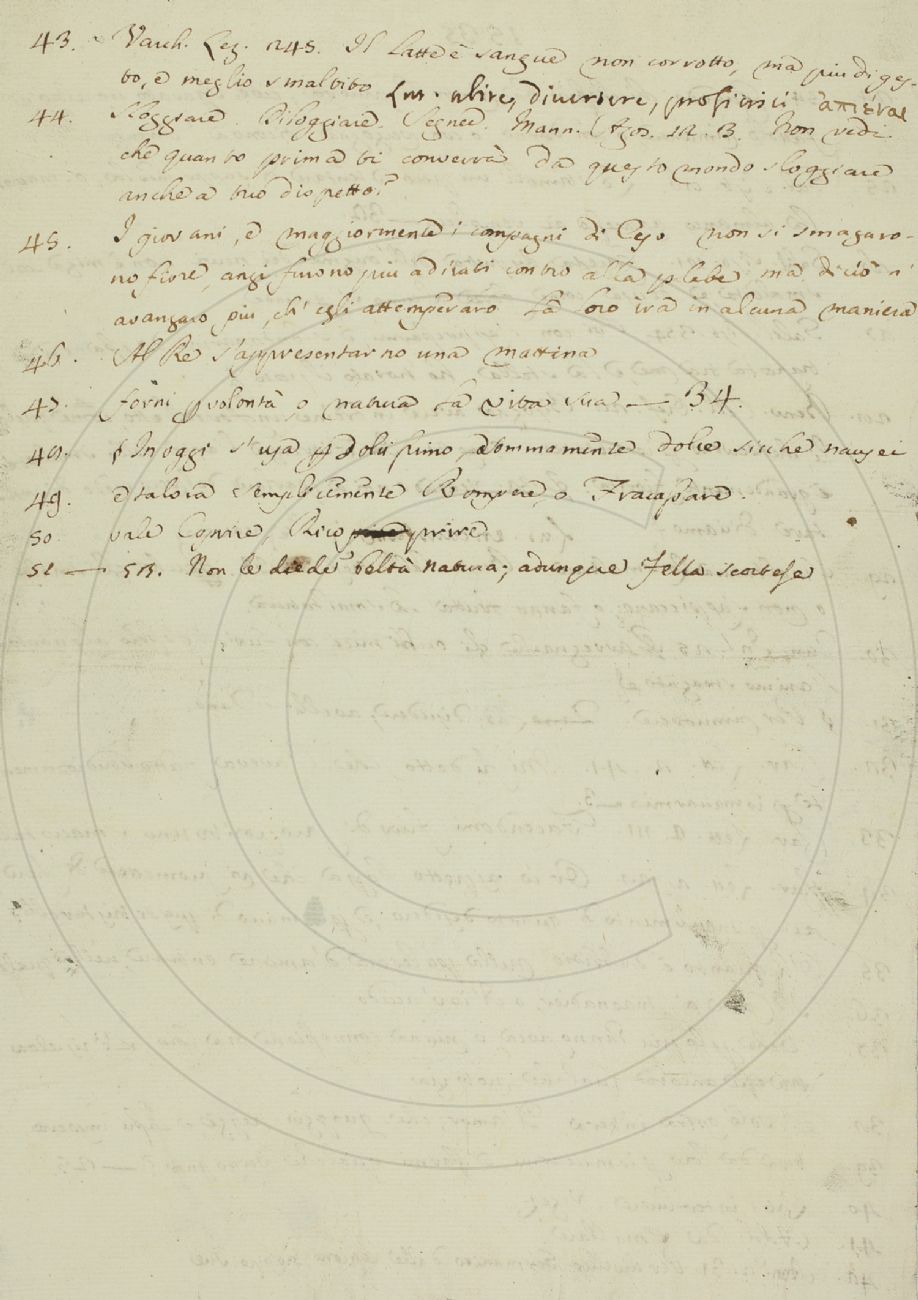 43. Varch. Lez. 245. Il latte è sangue non corrotto, ma più diges-
to, e meglio smaltito Lat. abire, divertere, proficisci ἀπιέναι
44. Sloggiare. Diloggiare. Segner. Mann. Agos. 12. 3. Non vedi
che quanto prima ti converrà da questo mondo sloggiare
anche a tuo dispetto?
45. I giovani, e maggiormente i compagni di Ceso non si smagaro-
no fiore, anzi furono più adirati contro alla plebe ma di ciò n'
avanzaro più, ch' egli attemperaro la loro ira in alcuna maniera
46. Al Re s'appresentarno una mattina
47. forni volontà o natura la vita sua — 34.
dolcissimo, dolce sicche nausei
49. e talora semplicemente Rompere, o Fracassare.
50 vale Coprire, Ricoprire
51 — 52. Non le diede beltà natura; adunque fella scortese